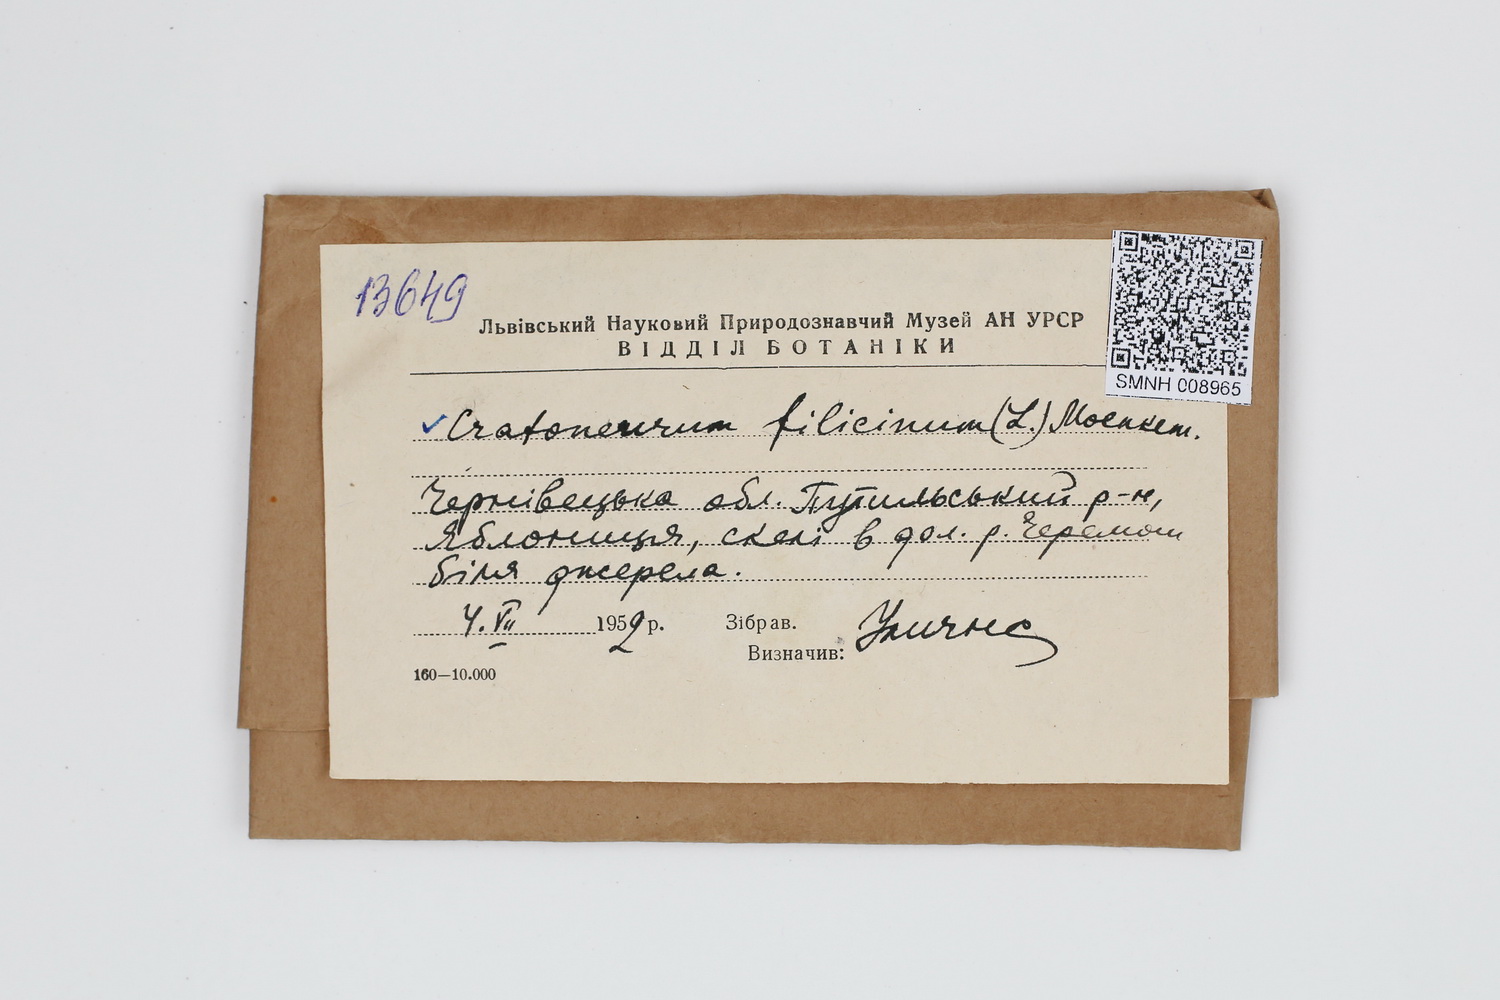 13649
Львівський Науковий Природознавчий Музей АН УРСР
ВІДДІЛ БОТАНІКИ
SMNH 008965
✓ Cratoneurum filicinum (L.) Moenkem.
Чернівецька обл. Путильський р-н,
Яблониця, скелі в дол. р. Черемош
біля джерела.
4.VII 1952 р. Зібрав. Улична
Визначив:
160—10.000